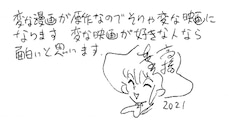 変な漫画が原作なのでそりゃ変な映画に
なります 変な映画が好きな人なら
面白いと思います.
2021